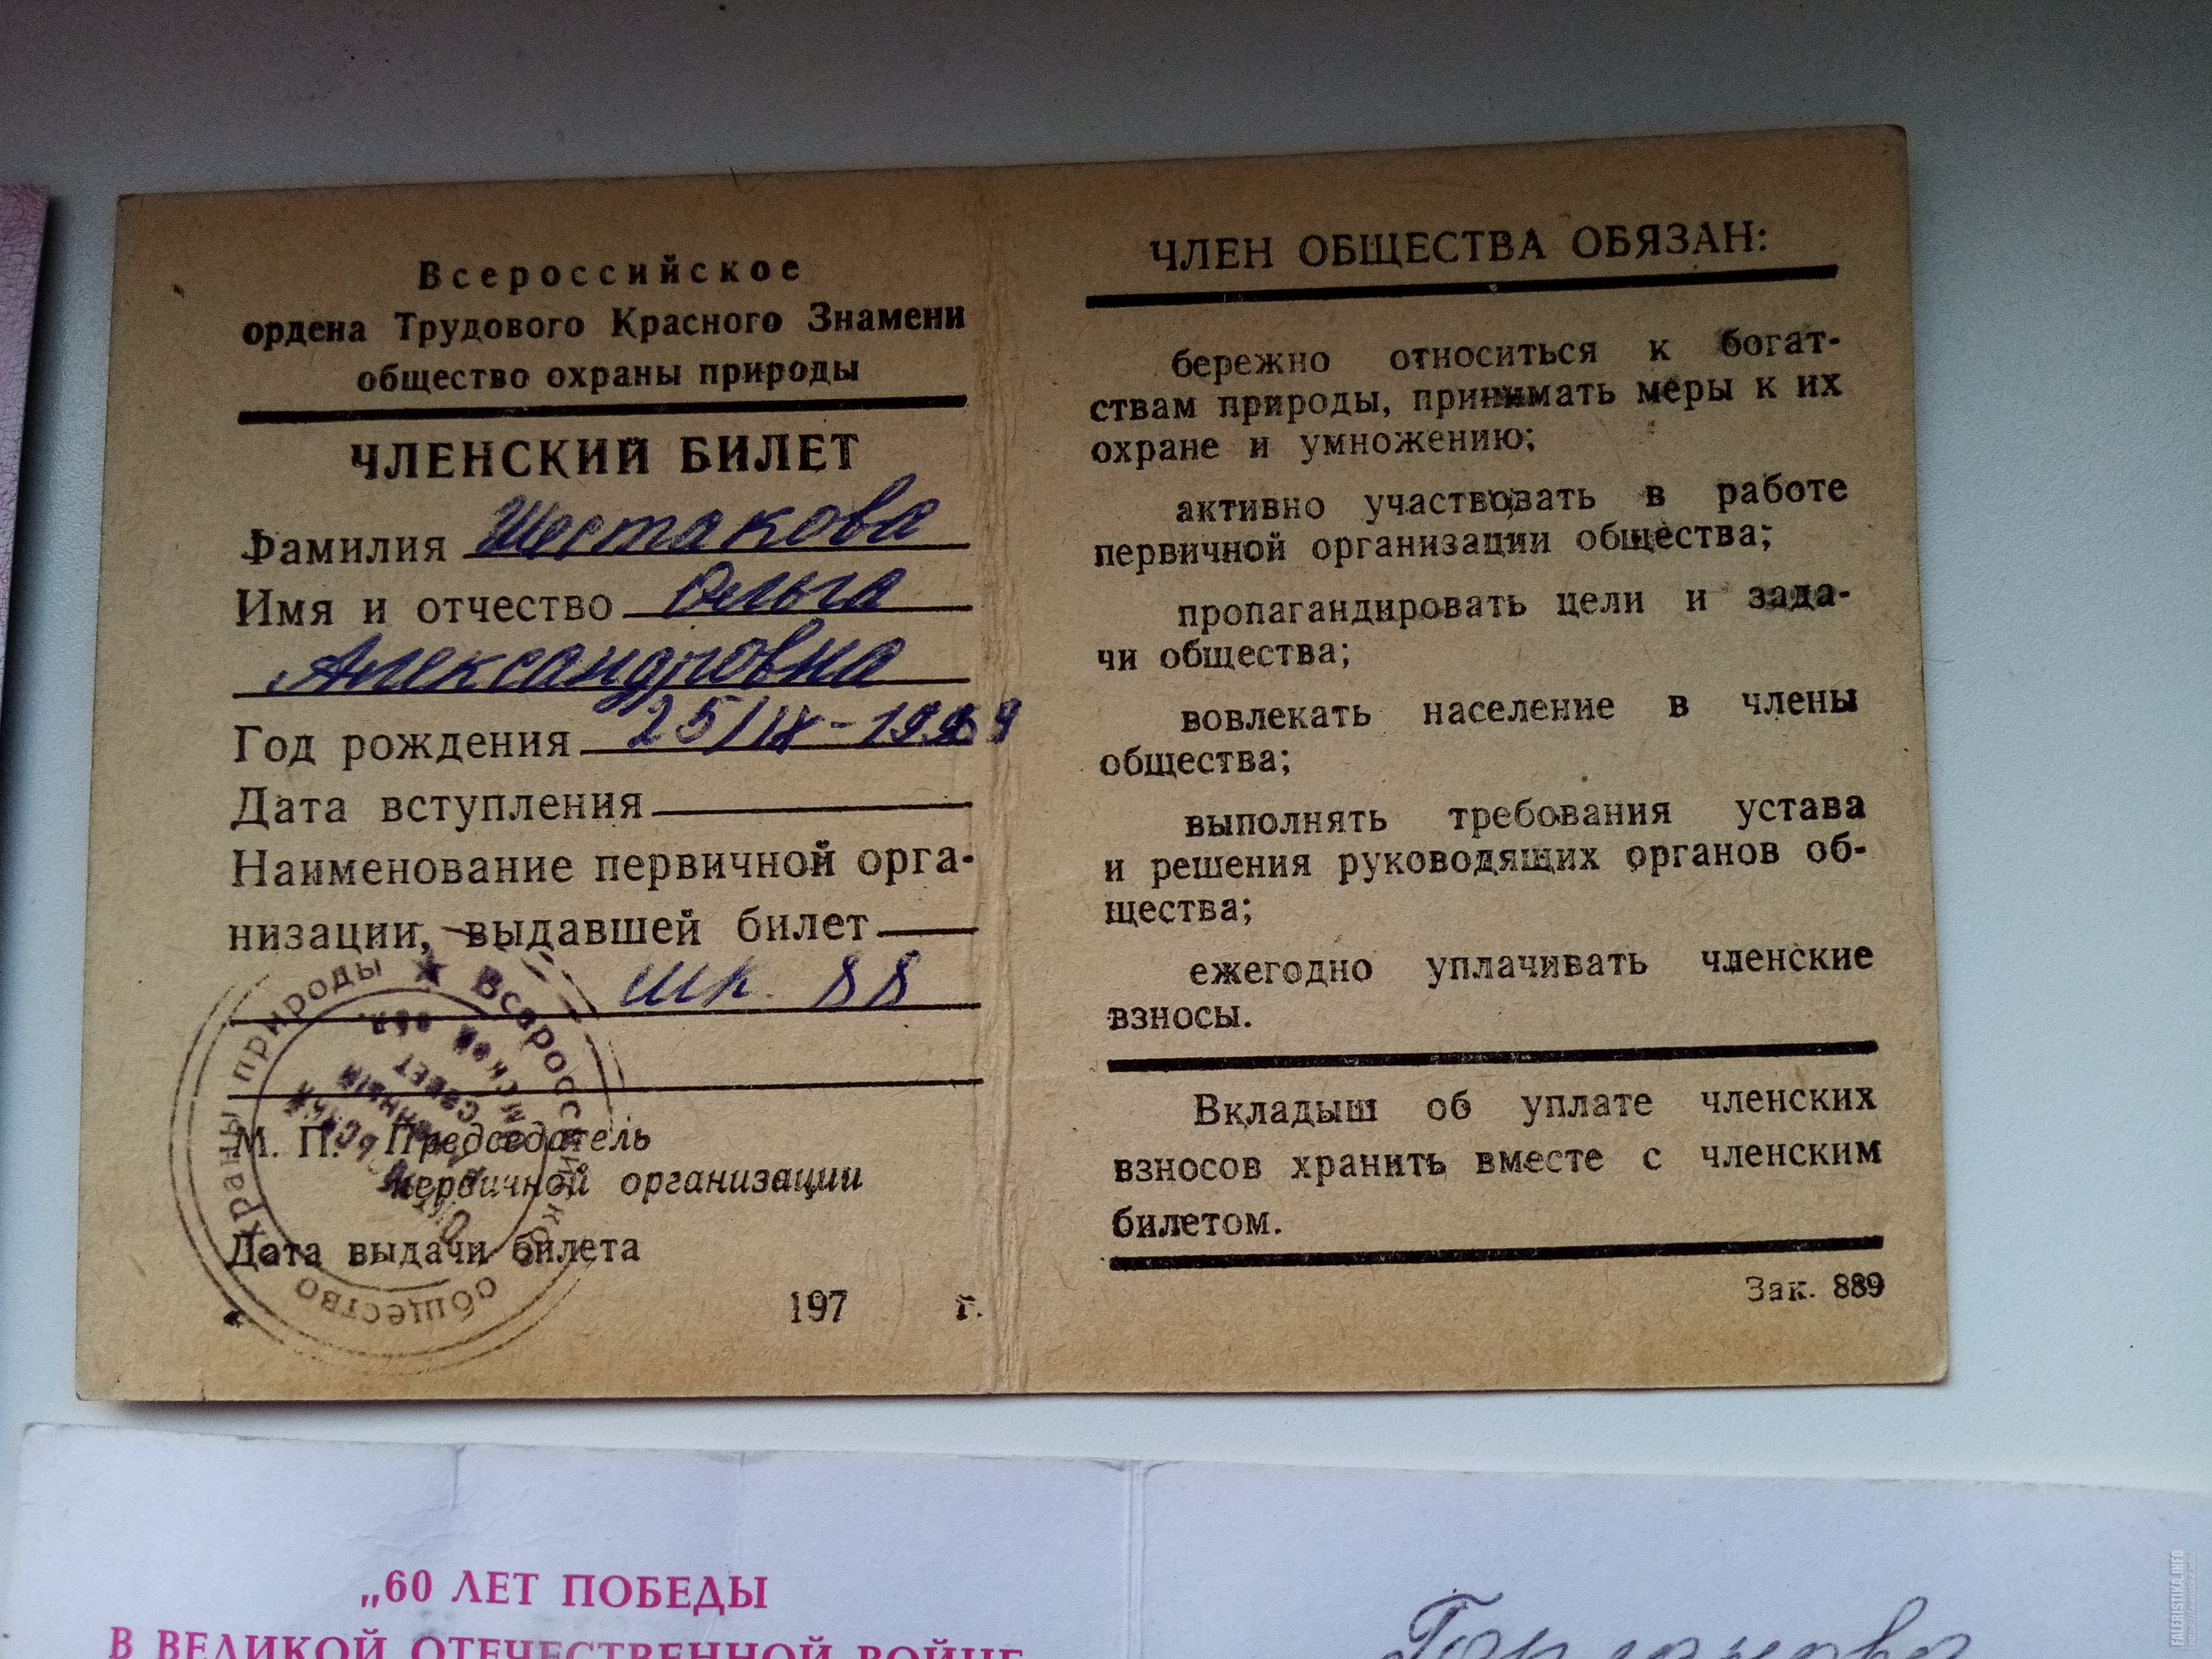 Всероссийское
ордена Трудового Красного Знамени
общество охраны природы
ЧЛЕНСКИЙ БИЛЕТ
Фамилия Шестакова
Имя и отчество Ольга
Александровна
Год рождения 25/IX-19
Дата вступления
Наименование первичной орга-
низации, выдавшей билет
шк. 88
М. П. Председатель
первичной организации
Дата выдачи билета
197 г.
охраны природы ★ Всероссийское
общество
обл.
совет
ЧЛЕН ОБЩЕСТВА ОБЯЗАН:
бережно относиться к богат-
ствам природы, принимать меры к их
охране и умножению;
активно участвовать в работе
первичной организации общества;
пропагандировать цели и зада-
чи общества;
вовлекать население в члены
общества;
выполнять требования устава
и решения руководящих органов об-
щества;
ежегодно уплачивать членские
взносы.
Вкладыш об уплате членских
взносов хранить вместе с членским
билетом.
Зак. 889
„60 ЛЕТ ПОБЕДЫ
В ВЕЛИКОЙ ОТЕЧЕСТВЕННОЙ ВОЙНЕ
FALERISTIKA.INFO